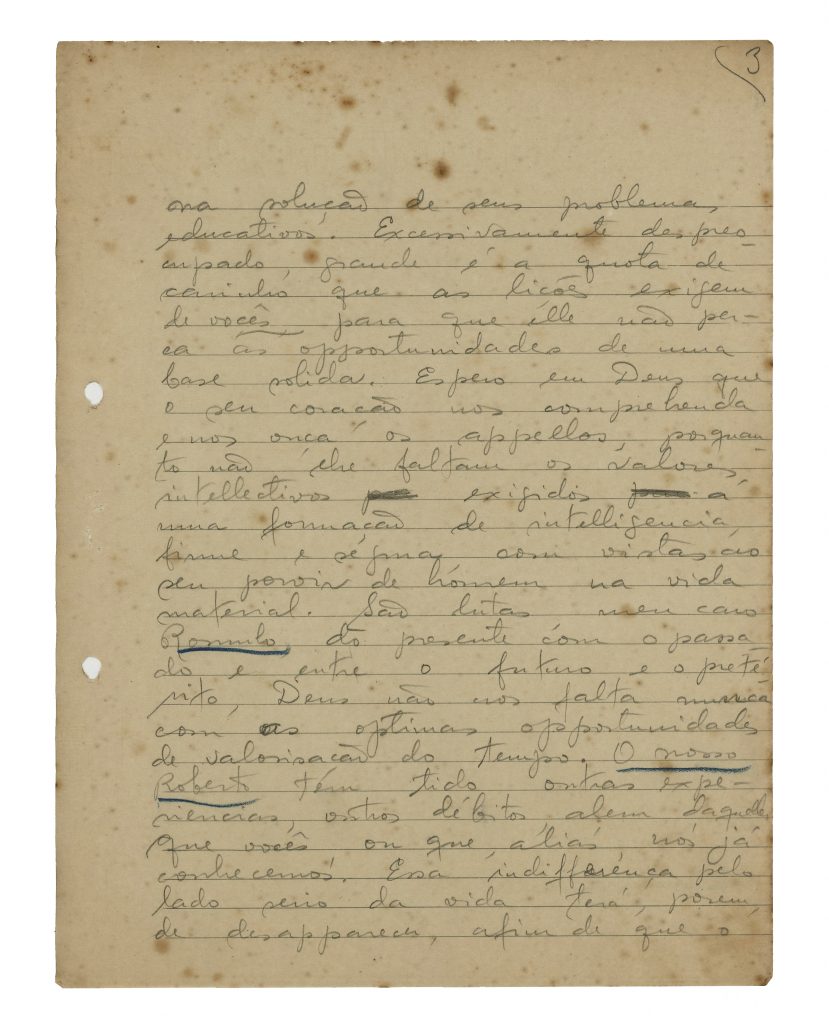 3
na solução de seus problemas
educativos. Excessivamente despreo-
cupado, grande é a quota de
carinho que as lições exigem
de vocês, para que êlle não per-
ca as opportunidades de uma
base solida. Espero em Deus que
o seu coração nos comprehenda
e nos onça os appellos, porquan-
to não lhe faltam os valores
intellectivos exigidos a
uma formação de intelligencia
firme e segura com vistas ao
seu porvir de homem na vida
material. São lutas meu caro
Romulo do presente com o passa-
do e entre o futuro e o preté-
rito, Deus não nos falta nunca
com as optimas opportunidades
de valorisação do tempo. O nosso
Roberto tém tido outras expe-
riencias, outros débitos alem daquelles
que vocês ou que, aliás nós já
conhecemos. Essa indifferença pelo
lado serio da vida terá, porem,
de desapparecer, afim de que o